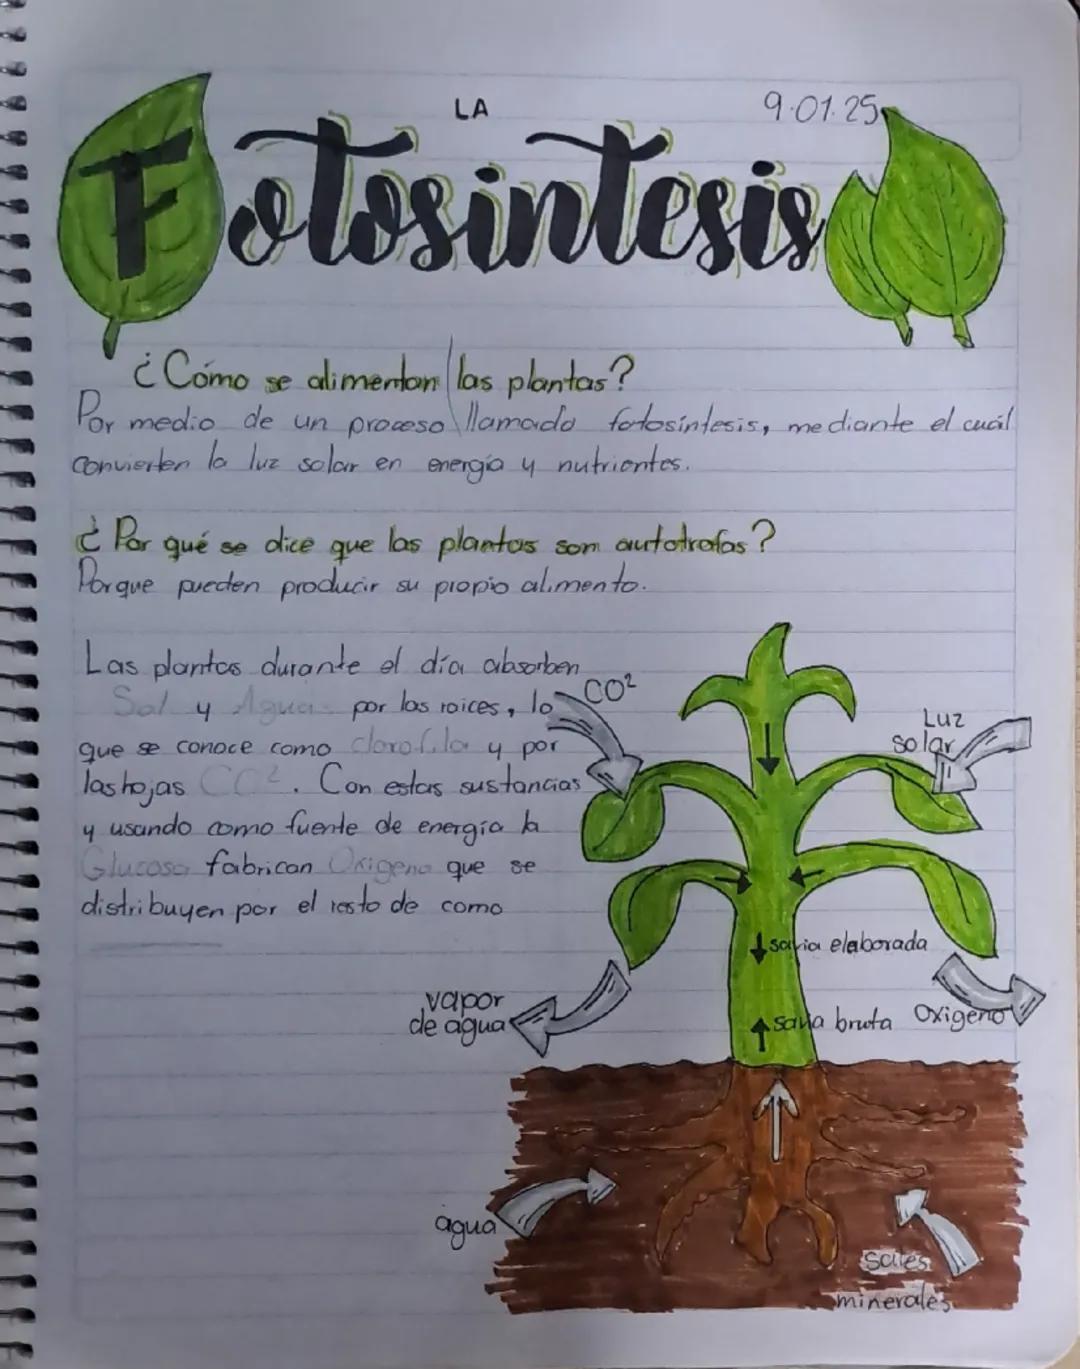 LA
9.01.25
Fotosíntesis
¿Cómo se alimentan las plantas?
Por medio de un proceso llamado fotosíntesis, mediante el cuál
convierten la luz solar en energía y nutrientes.
¿Por qué se dice que las plantas son autotrofas?
Porque pueden producir su propio alimento.
Las plantas durante el día absorben
Sal y Agua por las raices, lo
que se conoce como clorofila y por
las hojas CO². Con estas sustancias
y usando como fuente de energía la
Glucosa fabrican Oxigeno que se
distribuyen por el resto de como
CO²
Luz
solar
savia elaborada
vapor
de agua
savia bruta
Oxigeno
agua
sales
minerales